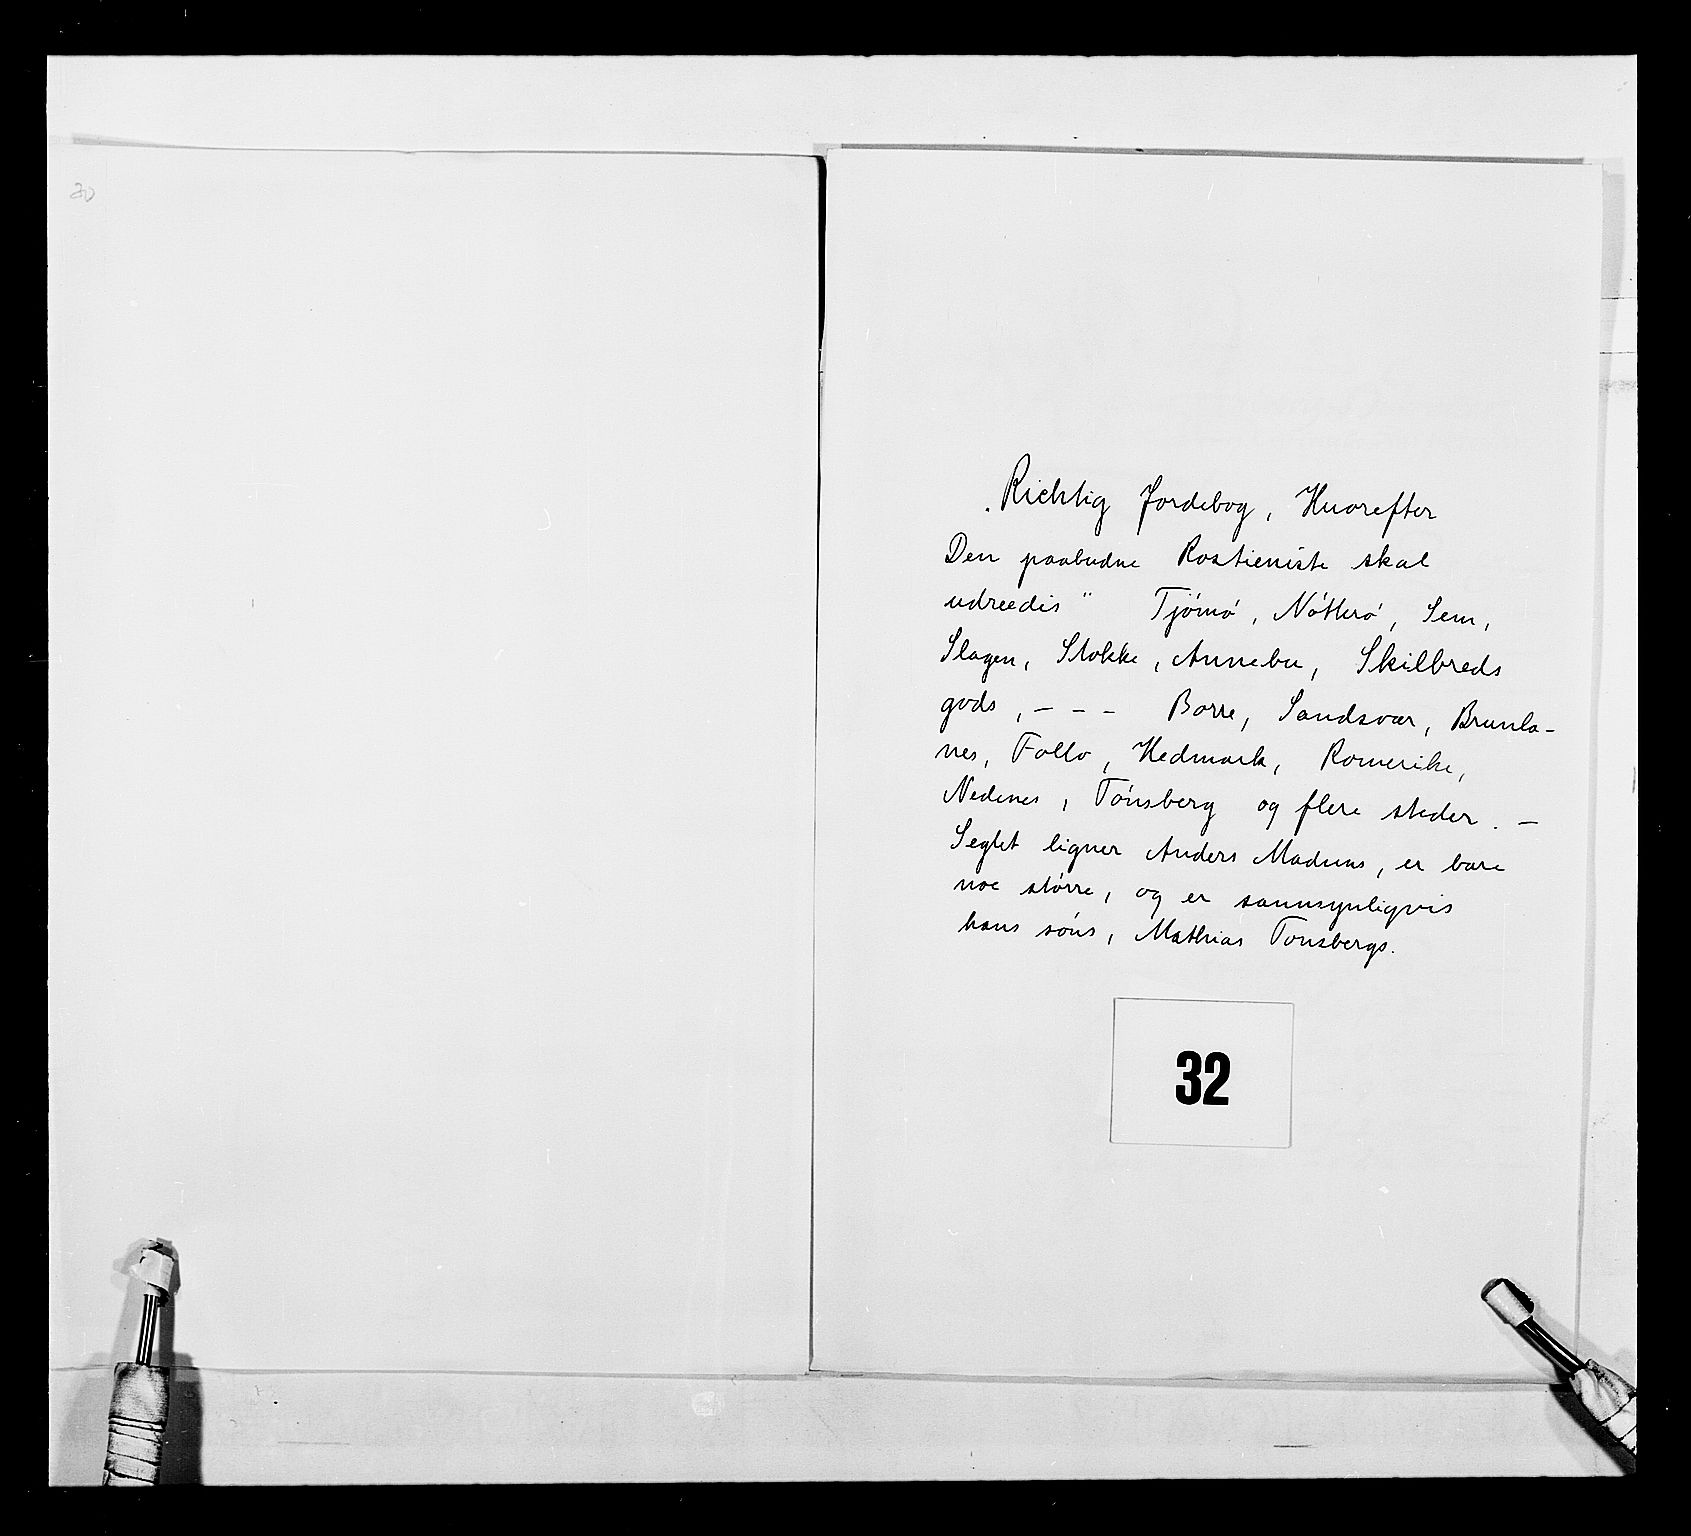 30
„Richtig Jordebog, Huorefter
Den paabudne Rostieniste skal
udreedis" Tjömö, Nötterö, Sem,
Slagen, Stokke, Annebu, Skilbreds
gods, - - - Borre, Sandsvær, Brunla-
nes, Follo, Hedmark, Romerike,
Nedenes, Tönsberg og flere steder. –
Seglet ligner Anders Madsens, er bare
noe större, og er sannsynligvis
hans söns, Mathias Tonsbergs.
32